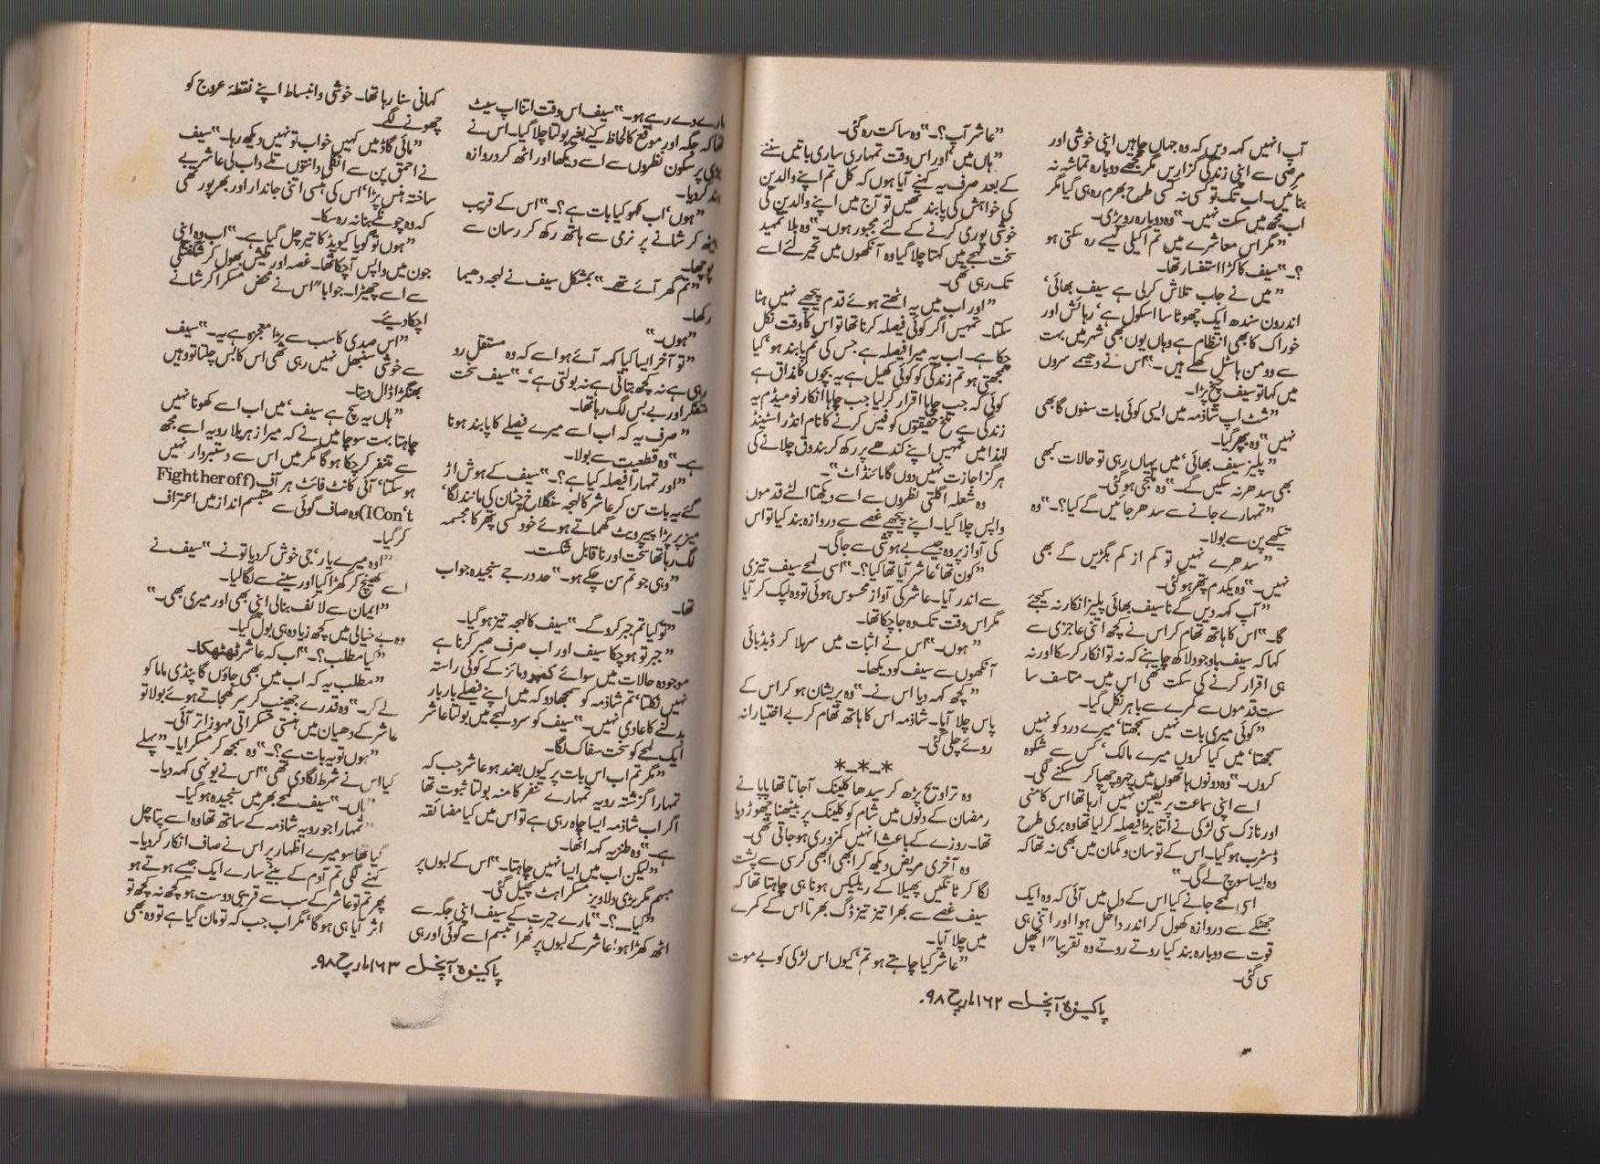 آپ انہیں کہہ دیں کہ وہ جہاں چاہیں اپنی خوشی اور
مرضی سے اپنی زندگی گزاریں مگر مجھے دوبارہ تماشہ نہ
بنائیں۔ اب تک تو کسی نہ کسی طرح بھرم رہ ہی گیا مگر
اب مجھ میں سکت نہیں۔" وہ دوبارہ رو پڑی۔
"مگر اس معاشرے میں تم اکیلی کیسے رہ سکتی ہو
؟۔" سیف کا کڑا استفسار تھا۔
"میں نے جاب تلاش کرلی ہے سیف بھائی'
اندرون سندھ ایک چھوٹا سا اسکول ہے' رہائش اور
خوراک کا بھی انتظام ہے وہاں یوں بھی شہر میں بہت
سے وومن ہاسٹل کھلے ہیں۔" اس نے دھیمے سروں
میں کہا تو سیف چیخ پڑا۔
"شٹ اپ شاذمہ میں ایسی کوئی بات سنوں گا بھی
نہیں" وہ بپھر گیا۔
"پلیز سیف بھائی' میں یہاں رہی تو حالات کبھی
بھی سدھر نہ سکیں گے۔" وہ ملتجی ہو گئی۔
"تمہارے جانے سے سدھر جائیں گے کیا؟۔" وہ
تیکھے پن سے بولا۔
"سدھرے نہیں تو کم از کم بگڑیں گے بھی
نہیں۔" وہ یکدم پتھر ہو گئی۔
"آپ کہہ دیں گے نا سیف بھائی پلیز انکار نہ کیجئے
گا۔" اس کا ہاتھ تھام کر اس نے کچھ اتنی عاجزی سے
کہا کہ سیف باوجود لاکھ چاہنے کہ نہ تو انکار کرسکا اور نہ
ہی اقرار کرنے کی سکت تھی اس میں۔ متاسف سا
ست قدموں سے کمرے سے باہر نکل گیا۔
"کوئی میری بات نہیں سمجھتا' میرے درد کو نہیں
سمجھتا' میں کیا کروں میرے مالک' کس سے شکوہ
کروں۔" وہ دونوں ہاتھوں میں چہرہ چھپا کر سسکنے لگی۔
اسے اپنی سماعت پر یقین نہیں آرہا تھا اس کامنی
اور نازک سی لڑکی نے اتنا بڑا فیصلہ کرلیا تھا وہ بری طرح
ڈسٹرب ہو گیا۔ اس کے تو سان و گمان میں بھی نہ تھا کہ
وہ ایسا سوچ لے گی۔"
اسی لمحے جانے کیا اس کے دل میں آئی کہ وہ ایک
جھٹکے سے دروازہ کھول کر اندر داخل ہوا اور اتنی ہی
قوت سے دوبارہ بند کیا روتے روتے وہ تقریبا" اچھل
سی گئی۔
"عاشر آپ؟۔" وہ ساکت رہ گئی۔
"ہاں میں' اور اس وقت تمہاری ساری باتیں سننے
کے بعد صرف یہ کہنے آیا ہوں کہ کل تم اپنے والدین
کی خواہش کی پابند تھیں تو آج میں اپنے والدین کی
خوشی پوری کرنے کے لئے مجبور ہوں۔" وہ بلا تمہید
سخت لہجے میں کہتا چلا گیا وہ آنکھوں میں تحیر لئے اسے
تک رہی تھی۔
"اور اب میں یہ اٹھتے ہوئے قدم پیچھے نہیں ہٹا
سکتا۔ تمہیں اگر کوئی فیصلہ کرنا تھا تو اس کا وقت نکل
چکا ہے۔ اب یہ میرا فیصلہ ہے جس کی تم پابند ہو' کیا
سمجھتی ہو تم زندگی کو کوئی کھیل ہے یہ بچوں کا مذاق ہے
کوئی کہ جب چاہا اقرار کرلیا جب چاہا انکار نو میڈم یہ
زندگی ہے تلخ حقیقتوں کو فیس کرنے کا نام انڈر اسٹینڈ
لہٰذا میں تمہیں اپنے کندھے پر رکھ کر بندوق چلانے کی
ہرگز اجازت نہیں دوں گا مائنڈ اٹ"۔
وہ شعلہ اگلتی نظروں سے اسے دیکھتا الٹے قدموں
واپس چلا گیا۔ اپنے پیچھے غصے سے دروازہ بند کیا تو اس
کی آواز پر وہ جیسے بے ہوشی سے جاگی۔
"کون تھا' عاشر آیا تھا کیا؟۔" اسی لمحے سیف تیزی
سے اندر آیا۔ عاشر کی آواز محسوس ہوئی تو وہ لپک کر آیا
مگر اس وقت تک وہ جاچکا تھا۔
"ہوں۔" اس نے اثبات میں سر ہلا کر ڈبڈبائی
آنکھوں سے سیف کو دیکھا۔
"کچھ کہہ دیا اس نے۔" وہ پریشان ہو کر اس کے
پاس چلا آیا۔ شاذمہ اس کا ہاتھ تھام کر بے اختیارانہ
روئے چلی گئی۔
*-*-*
وہ تراویح پڑھ کر سیدھا کلینک آجاتا تھا پاپا نے
رمضان کے دنوں میں شام کو کلینک پر بیٹھنا چھوڑ دیا
تھا۔ روزے کے باعث انہیں کمزوری ہو جاتی تھی۔
وہ آخری مریض دیکھ کر ابھی ابھی کرسی سے پشت
لگا کر ٹانگیں پھیلا کے ریلیکس ہونا ہی چاہتا تھا کہ
سیف غصے سے بھرا تیز تیز ڈگ بھرتا اس کے کمرے
میں چلا آیا۔
"عاشر کیا چاہتے ہو تم' کیوں اس لڑکی کو بے موت
پاکیزہ آنچل ۱۶۲ مارچ ۹۸ء
۳
مارے دے رہے ہو۔" سیف اس وقت اتنا اپ سیٹ
تھا کہ جگہ اور موقع کا لحاظ کئے بغیر بولتا چلا گیا۔ اس نے
بڑی پر سکون نظروں سے اسے دیکھا اور اٹھ کر دروازہ
بند کر دیا۔
"ہوں' اب کہو کیا بات ہے؟۔" اس کے قریب
بیٹھ کر شانے پر نرمی سے ہاتھ رکھ کر رسان سے
پوچھا۔
"تم گھر آئے تھے۔" بمشکل سیف نے لہجہ دھیما
رکھا۔
"ہوں۔"
"تو آخر ایسا کیا کہہ آئے ہو اسے کہ وہ مستقل رو
رہی ہے نہ کچھ بتاتی ہے نہ بولتی ہے'۔" سیف سخت
متفکر اور بے بس لگ رہا تھا۔
"صرف یہ کہ اب اسے میرے فیصلے کا پابند ہونا
ہے۔" وہ قطعیت سے بولا۔
"اور تمہارا فیصلہ کیا ہے؟۔" سیف کے ہوش اڑ
گئے یہ بات سن کر عاشر کا لہجہ سنگلاخ چٹان کی مانند لگا'
میز پر پڑا پیپر ویٹ گھماتے ہوئے خود کسی پتھر کا مجسمہ
لگ رہا تھا سخت اور ناقابل شکست۔
"وہی جو تم سن چکے ہو۔" حد درجے سنجیدہ جواب
تھا۔
"تو کیا تم جبر کرو گے۔" سیف کا لہجہ تیز ہو گیا۔
"جبر تو ہو چکا سیف اور اب صرف صبر کرنا ہے
موجودہ حالات میں سوائے کمپرومائز کے کوئی راستہ
نہیں نکلتا' تم شاذمہ کو سمجھا دو کہ میں اپنے فیصلے بار بار
بدلنے کا عادی نہیں۔" سیف کو سرد لہجے میں بولتا عاشر
ایک لمحے کو سخت سفاک لگا۔
"مگر تم اب اس بات پر کیوں بضد ہو عاشر جب کہ
تمہارا گزشتہ رویہ تمہارے تنفر کا منہ بولتا ثبوت تھا
اگر اب شاذمہ ایسا چاہ رہی ہے تو اس میں کیا مضائقہ
ہے۔" وہ طنزیہ کہہ اٹھا۔
"لیکن اب میں ایسا نہیں چاہتا۔" اس کے لبوں پر
مبہم مگر بڑی دلاویز مسکراہٹ پھیل گئی۔
"کیا۔۔؟۔" مارے حیرت کے سیف اپنی جگہ سے
اٹھ کھڑا ہوا' عاشر کے لبوں پر ٹھہرا تبسم اسے کوئی اور ہی
کہانی سنا رہا تھا۔ خوشی و انبساط اپنے نقطۂ عروج کو
چھونے لگے
"مائی گاڈ میں کہیں خواب تو نہیں دیکھ رہا۔" سیف
نے احمق پن سے انگلی دانتوں تلے داب لی عاشر بے
ساختہ ہنس پڑا' اس کی ہنسی اتنی جاندار اور بھرپور تھی
کہ وہ چونکے بنا نہ رہ سکا۔
"ہوں' تو گویا کیوپڈ کا تیر چل گیا ہے۔" اب وہ اپنی
جون میں واپس آچکا تھا۔ غصہ اور طیش بھول کر شگفتگی
سے اسے چھیڑا۔ جوابا" اس نے محض مسکرا کر شانے
اچکا دیئے۔
"اس صدی کا سب سے بڑا معجزہ ہے یہ۔" سیف
سے خوشی سنبھل نہیں رہی تھی اس کا بس چلتا تو وہیں
بھنگڑا ڈال دیتا۔
"ہاں یہ سچ ہے سیف' میں اب اسے کھونا نہیں
چاہتا بہت سوچا میں نے کہ میرا زہریلا رویہ اسے مجھ
سے متنفر کر چکا ہو گا مگر میں اس سے دستبردار نہیں
ہو سکتا' آئی کانٹ فائٹ ہر آف (Fight her off
I Con't) وہ صاف گوئی سے متبسم انداز میں اعتراف
کر گیا۔
"اوہ میرے یار' جی خوش کر دیا تو نے۔" سیف نے
اسے کھینچ کر کھڑا کیا اور سینے سے لگا لیا۔
"ایمان سے لائف بنالی اپنی بھی اور میری بھی۔"
وہ بے خیالی میں کچھ زیادہ ہی بول گیا۔
"کیا مطلب؟۔" اب کہ عاشر ٹھٹھکا۔
"مطلب یہ کہ اب میں بھی جاؤں گا پنڈی ماما کو
لے کر۔" وہ قدرے جھینپ کر سر کھجاتے ہوئے بولا تو
عاشر کے دھیان میں ہنستی مسکراتی مہروز اتر آئی۔
"ہوں تو یہ بات ہے؟۔" وہ سمجھ کر مسکرایا۔ "پہلے
کیا اس نے شرط لگا دی تھی" اس نے یونہی کہہ دیا۔
"ہاں۔" سیف لمحے بھر میں سنجیدہ ہو گیا۔
"تمہارا جو رویہ شاذمہ کے ساتھ تھا وہ اسے پتا چل
گیا تھا سو میرے اظہار پر اس نے صاف انکار کر دیا۔
کہنے لگی تم آدم کے بیٹے سارے ایک جیسے ہوتے ہو
پھر تم تو عاشر کے سب سے قریبی دوست ہو کچھ نہ کچھ تو
اثر آیا ہی ہو گا' مگر اب جب کہ تو مان گیا ہے تو وہ بھی
پاکیزہ آنچل ۱۶۳ مارچ ۹۸ء